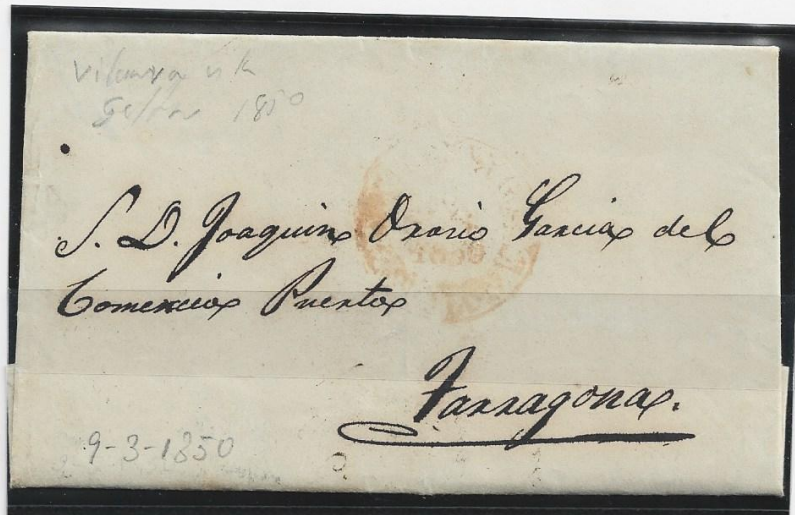 1850
S. D. Joaquin Osorio Garcia del
Comercio Puerto
Tarragona.
9-3-1850